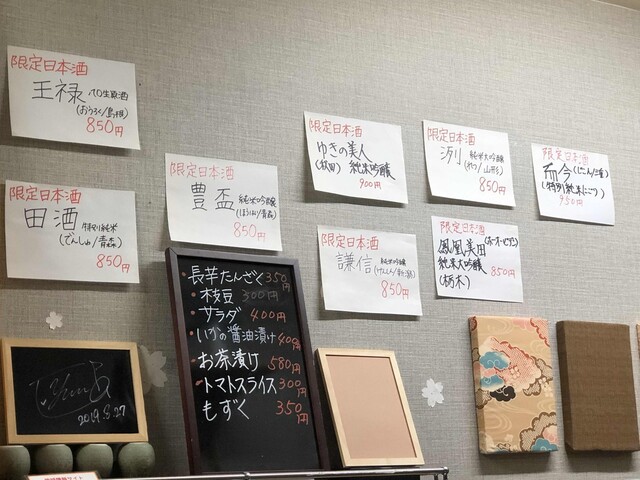 限定日本酒
王禄
(おうろく/島根)
850円
限定日本酒
田酒
特別純米
(でんしゅ/青森)
850円
限定日本酒
豊盃
純米吟醸
(ほうはい/青森)
850円
限定日本酒
ゆきの美人
(秋田) 純米吟醸
900円
限定日本酒
謙信
純米吟醸
(けんしん/新潟)
850円
限定日本酒
洌
純米大吟醸
(れつ/山形)
850円
限定日本酒
鳳凰美田
純米大吟醸
(栃木)
850円
限定日本酒
而今
(じこん/三重)
950円
・長芋たんざく 350円
・枝豆 300円
・サラダ 400円
・いかの醤油漬け 400円
・お茶漬け 580円
・トマトスライス 300円
もずく 350円
2019.8.27